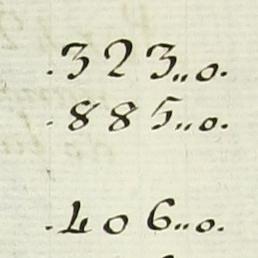 .323,,o.
.885,,o.
.406,,o.